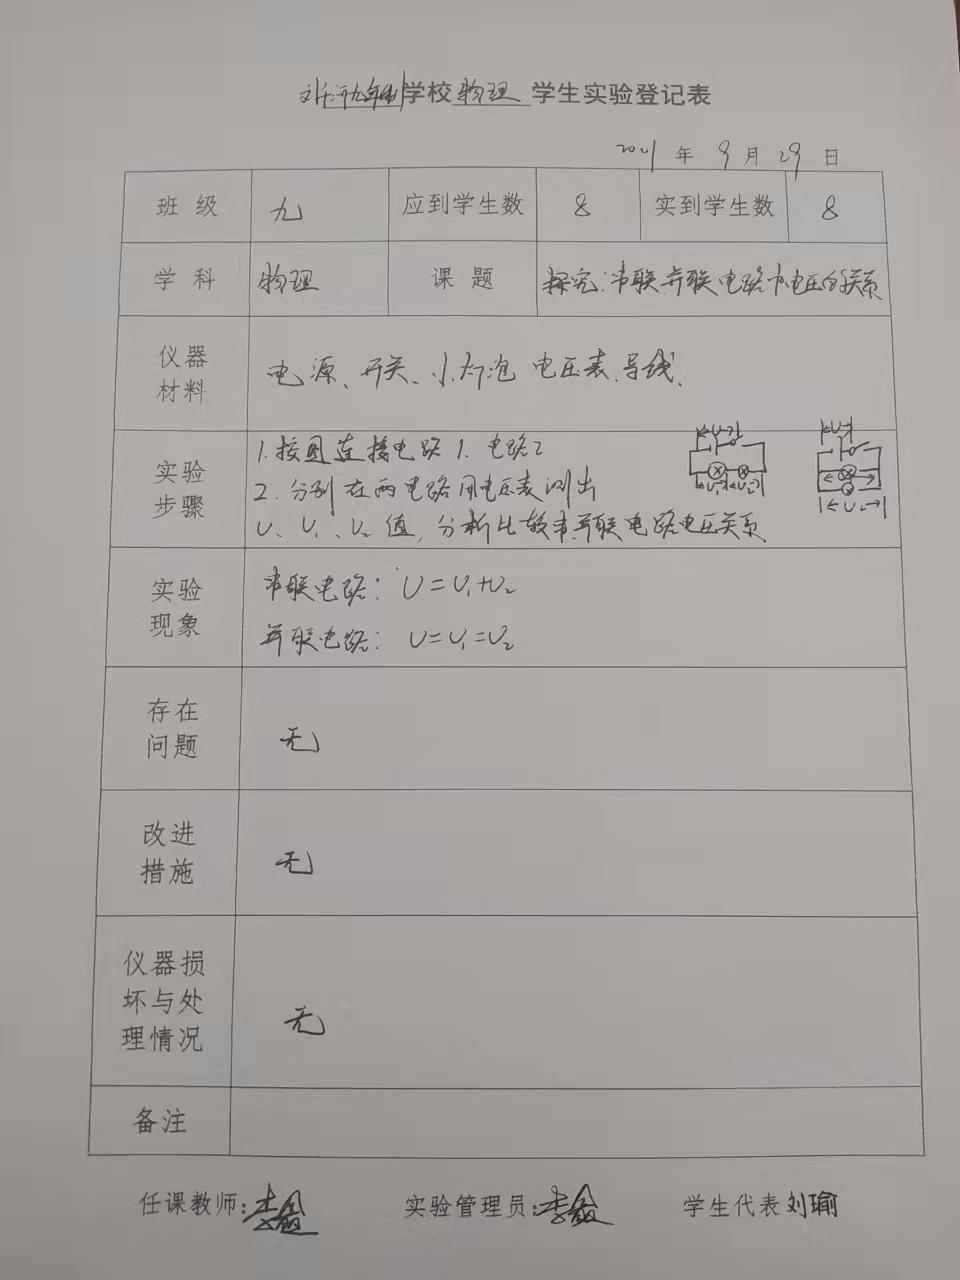 学校物理学生实验登记表
2021年9月29日
班级 九 应到学生数 8 实到学生数 8
学科 物理 课题 探究:串联、并联电路中电压的关系
仪器材料 电源、开关、小灯泡 电压表、导线、
实验步骤 1.按图连接电路1、电路2
2.分别在两电路用电压表测出
U、U₁、U₂值,分析比较串、并联电路电压关系
U
U₁ U₂
U
U₂
实验现象 串联电路:U=U₁+U₂
并联电路:U=U₁=U₂
存在问题 无
改进措施 无
仪器损坏与处理情况 无
备注
任课教师: 实验管理员: 学生代表 刘瑜